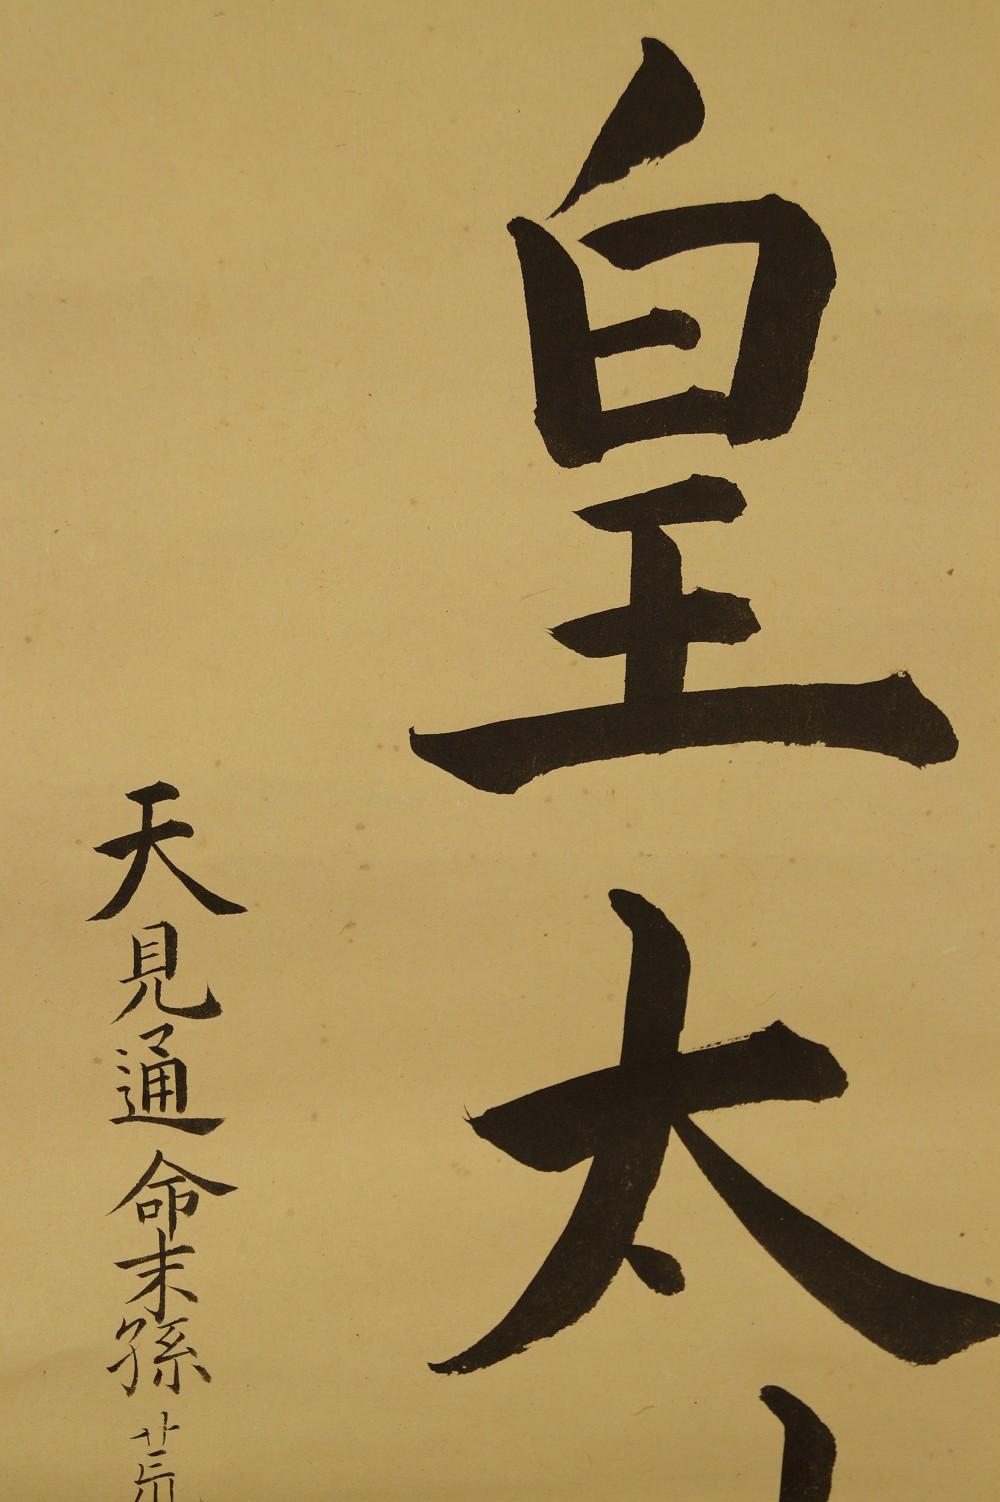 皇太
天見通命末孫荒